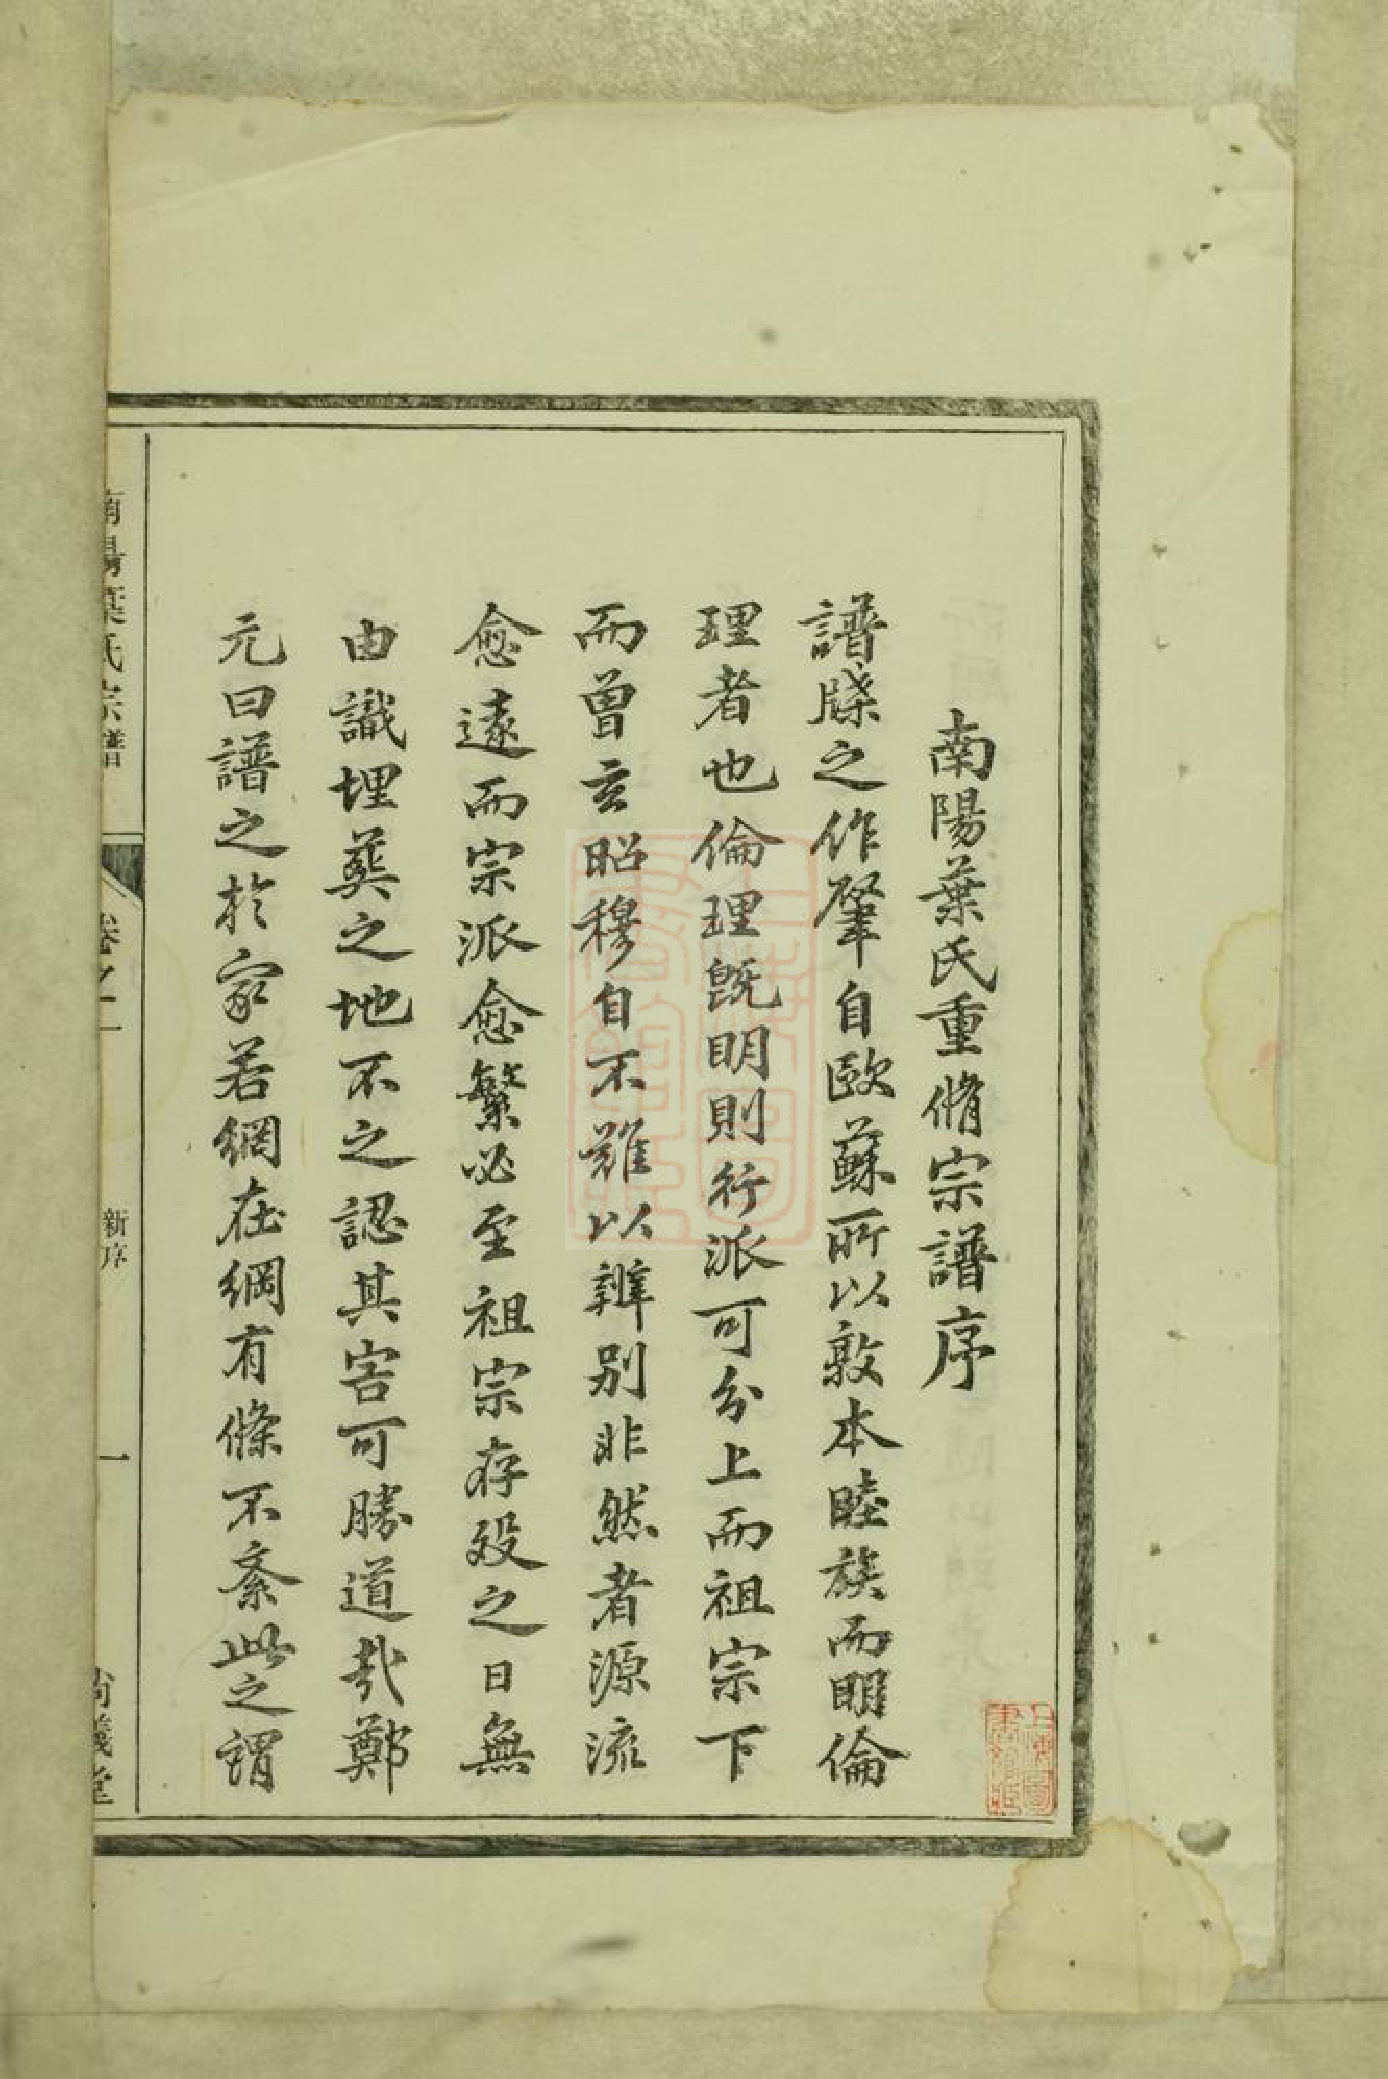 南陽葉氏重脩宗譜序
譜牒之作肇自歐蘇所以敦本睦族而明倫
理者也倫理既明則行派可分上而祖宗下
而曾玄昭穆自不難以辦别非然者源流
愈遠而宗派愈繁必至祖宗存殁之日無
由識埋葬之地不之認其害可勝道哉鄭
元曰譜之於家若網在綱有條不紊此之謂
南陽葉氏宗譜
卷之一
新序
一
尚義堂
上海圖書館藏